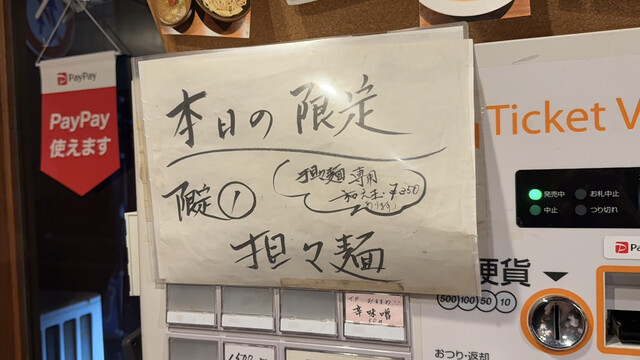 PayPay
PayPay
使えます
本日の限定
限定①
担々麺専用
和え玉¥250
あります
担々麺
Ticket V
発売中
お札中止
中止
つり切れ
硬貨
500 100 50 10
おつり・返却
辛味噌